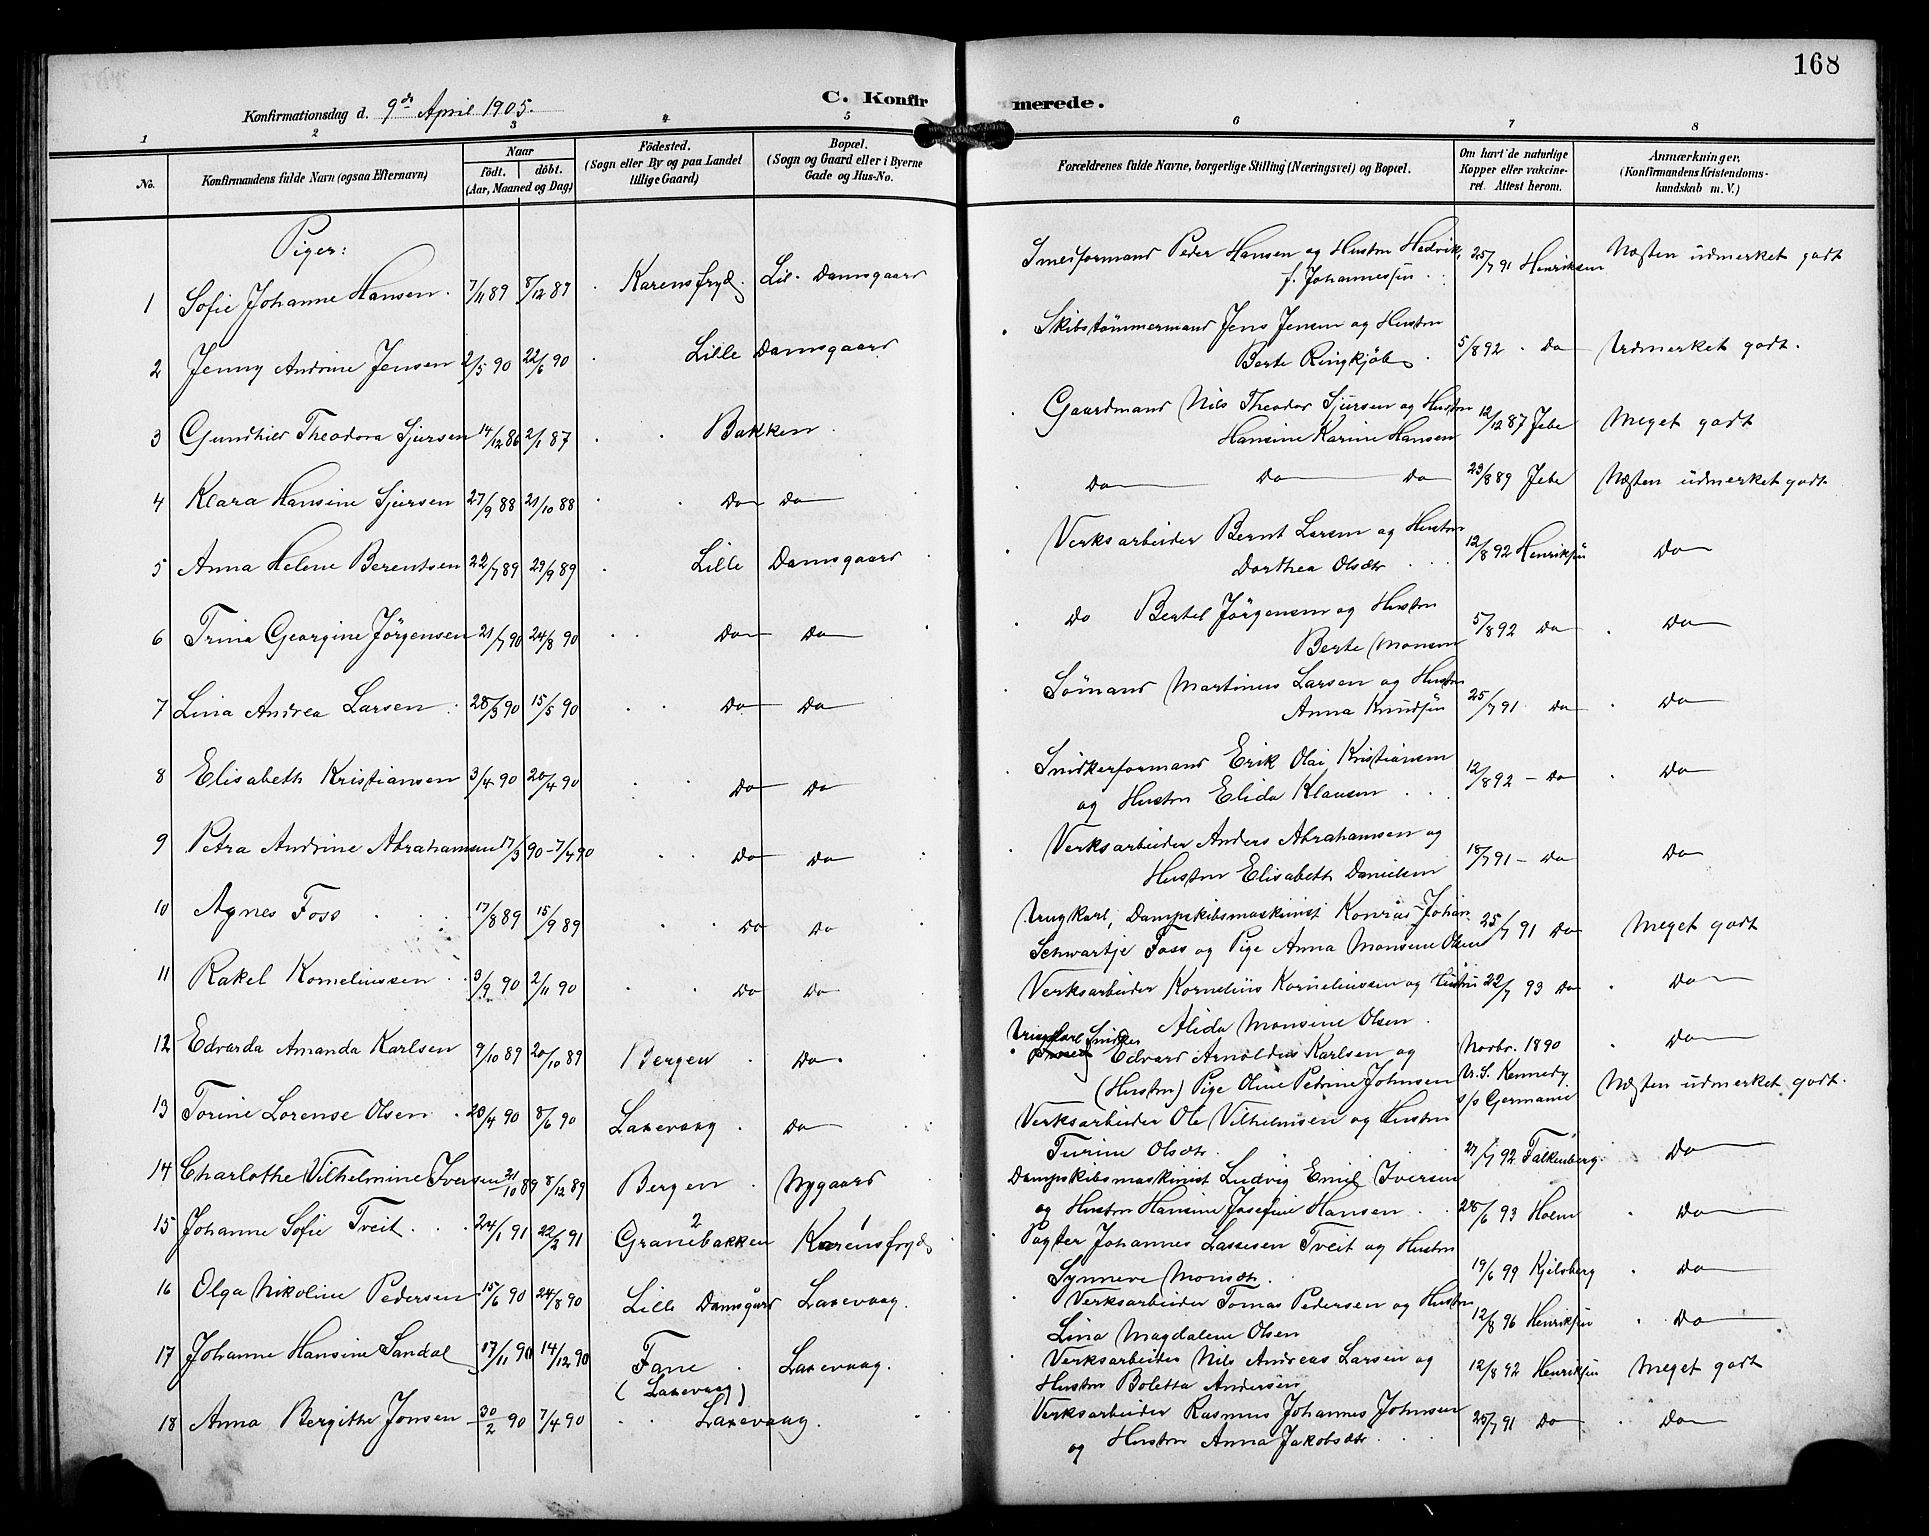 168
C. Konfirmerede.
Konfirmationsdag d. 9de April 1905.
1 2 3 4 5 6 7 8
No.
Konfirmandens fulde Navn (ogsaa Efternavn)
Naar
födt. döbt.
(Aar, Maaned og Dag)
Födested.
(Sogn eller By og paa Landet
tillige Gaard)
Bopæl.
(Sogn og Gaard eller i Byerne
Gade og Hus-No.
Forældrenes fulde Navne, borgerlige Stilling (Næringsvei) og Bopæl.
Om havt de naturlige
Kopper eller vakcine-
ret. Attest herom.
Anmærkninger.
(Konfirmandens Kristendoms-
kundskab m. V.)
Piger:
1 Sofie Johanne Hansen. 7/11 89 8/12 89 Karensfryd. Lil. Damsgaard Smedformand Peder Hansen og Hustru Hedvik, 25/7 91 Henriksen Næsten udmerket godt
f. Johannessen
2 Jenny Andrine Jensen 2/5 90 22/6 90 Lille Damsgaard Skibstömmermand Jens Jensen og Hustru
Berte Ringkjöb 5/8 92 Do Udmerket godt.
3 Gundhild Theodora Sjursen 14/12 86 2/1 87 Bakken Gaardmand Nils Theodor Sjursen og Hustru
Hansine Karine Hansen 12/12 87 Jebe Meget godt
4 Klara Hansine Sjursen 27/9 88 21/10 88 Do Do Do Do Do 23/8 89 Jebe Næsten udmerket godt
5 Anna Helene Berentsen 22/7 89 29/9 89 Lille Damsgaard Verksarbeider Bernt Larsen og Hustru
Dorthea Olsdtr 12/8 92 Henriksen Do
6 Trina Georgine Jörgensen 21/7 90 24/8 90 Do Do Do Bertel Jörgensen og Hustru
Berte Monsen 5/8 92 Do Do
7 Lina Andrea Larsen 28/3 90 15/5 90 Do Do Sömand Martinus Larsen og Hustru
Anna Knudsen 25/7 91 Do Do
8 Elisabeth Kristiansen 3/4 90 20/4 90 Do Do Snidkerformand Erik Olai Kristiansen
og Hustru Elida Klausen 12/8 92 - Do Do
9 Petra Andrine Abrahamsen 17/3 90 - 7/4 90 Do Do Verksarbeider Anders Abrahamsen og
Hustru Elisabeth Danielsen 18/7 91 - Do Do
10 Agnes Foss 17/8 89 15/9 89 Do Do Ungkarl, Dampskibsmaskinist Konrad Johan
Schwartje Foss og Pige Anna Monsine Olsen 25/7 91 Do Meget godt
11 Rakel Korneliussen 3/9 90 2/11 90 Do Do Verksarbeider Kornelius Korneliussen og Hustru 22/7 93 Do Do
Alida Monsine Olsen
12 Edvarda Amanda Karlsen 9/10 89 20/10 89 Bergen Do Ungkarl Snidker
Edvard Arnoldus Karlsen og Novbr. 1890 Do
(Hustru) Pige Oline Petrine Johnsen Dr. S. Kennedy
s/s Germanic
13 Torine Lorense Olsen 20/4 90 8/6 90 Laxevaag Do Verksarbeider Ole Vilhelmsen og Hustru Næsten udmerket godt.
Turine Olsdtr.
14 Charlothe Vilhelmine Iversen 21/10 89 8/12 89 Bergen Nygaard Dampskibsmaskinist Ludvig Emil Iversen 27/7 92 Falkenberg Do
og Hustru Hansine Josefine Hansen
15 Johanne Sofie Tveit 24/1 91 22/2 91 2 Granebakken 1 Karensfryd Pagter Johannes Lassesen Tveit og Hustru 28/6 93 Holm Do
Synneve Monsdtr.
16 Olga Nikoline Pedersen 15/6 90 24/8 90 Lille Damsgård Laxevaag. Verksarbeider Tomas Pedersen og Hustru 19/6 99 Kjelsberg Do
Lina Magdalene Olsen 12/8 96 Henriksen Do
17 Johanne Hansine Sandal 17/11 90 14/12 90 Fane
(Laxevaag) Laxevaag. Verksarbeider Nils Andreas Larsen og
Hustru Boletta Andersen 12/8 92 Henriksen Meget godt
18 Anna Bergithe Jonsen 30/2 90 7/4 90 Laxevaag. Verksarbeider Rasmus Johannes Johnsen
og Hustru Anna Jakobsdtr. 25/7 91 Do Do